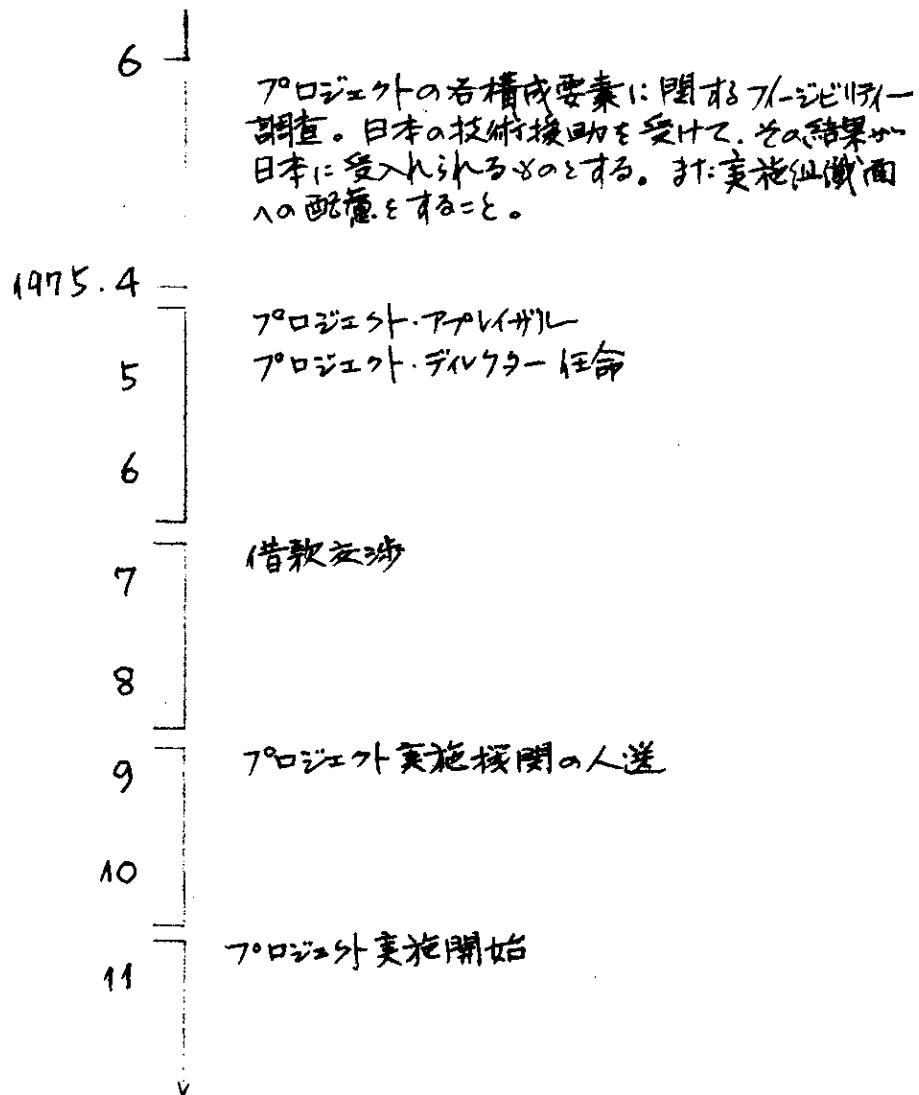 6
プロジェクトの各構成要素に関するフィージビリティー
調査。日本の技術援助を受けて、その結果が
日本に受入れられるものとする。また実施組織面
への配慮をすること。
1975.4
プロジェクト・アプレイザル
5 プロジェクト・ディレクター任命
6
7 借款交渉
8
9 プロジェクト実施機関の人選
10
プロジェクト実施開始
11